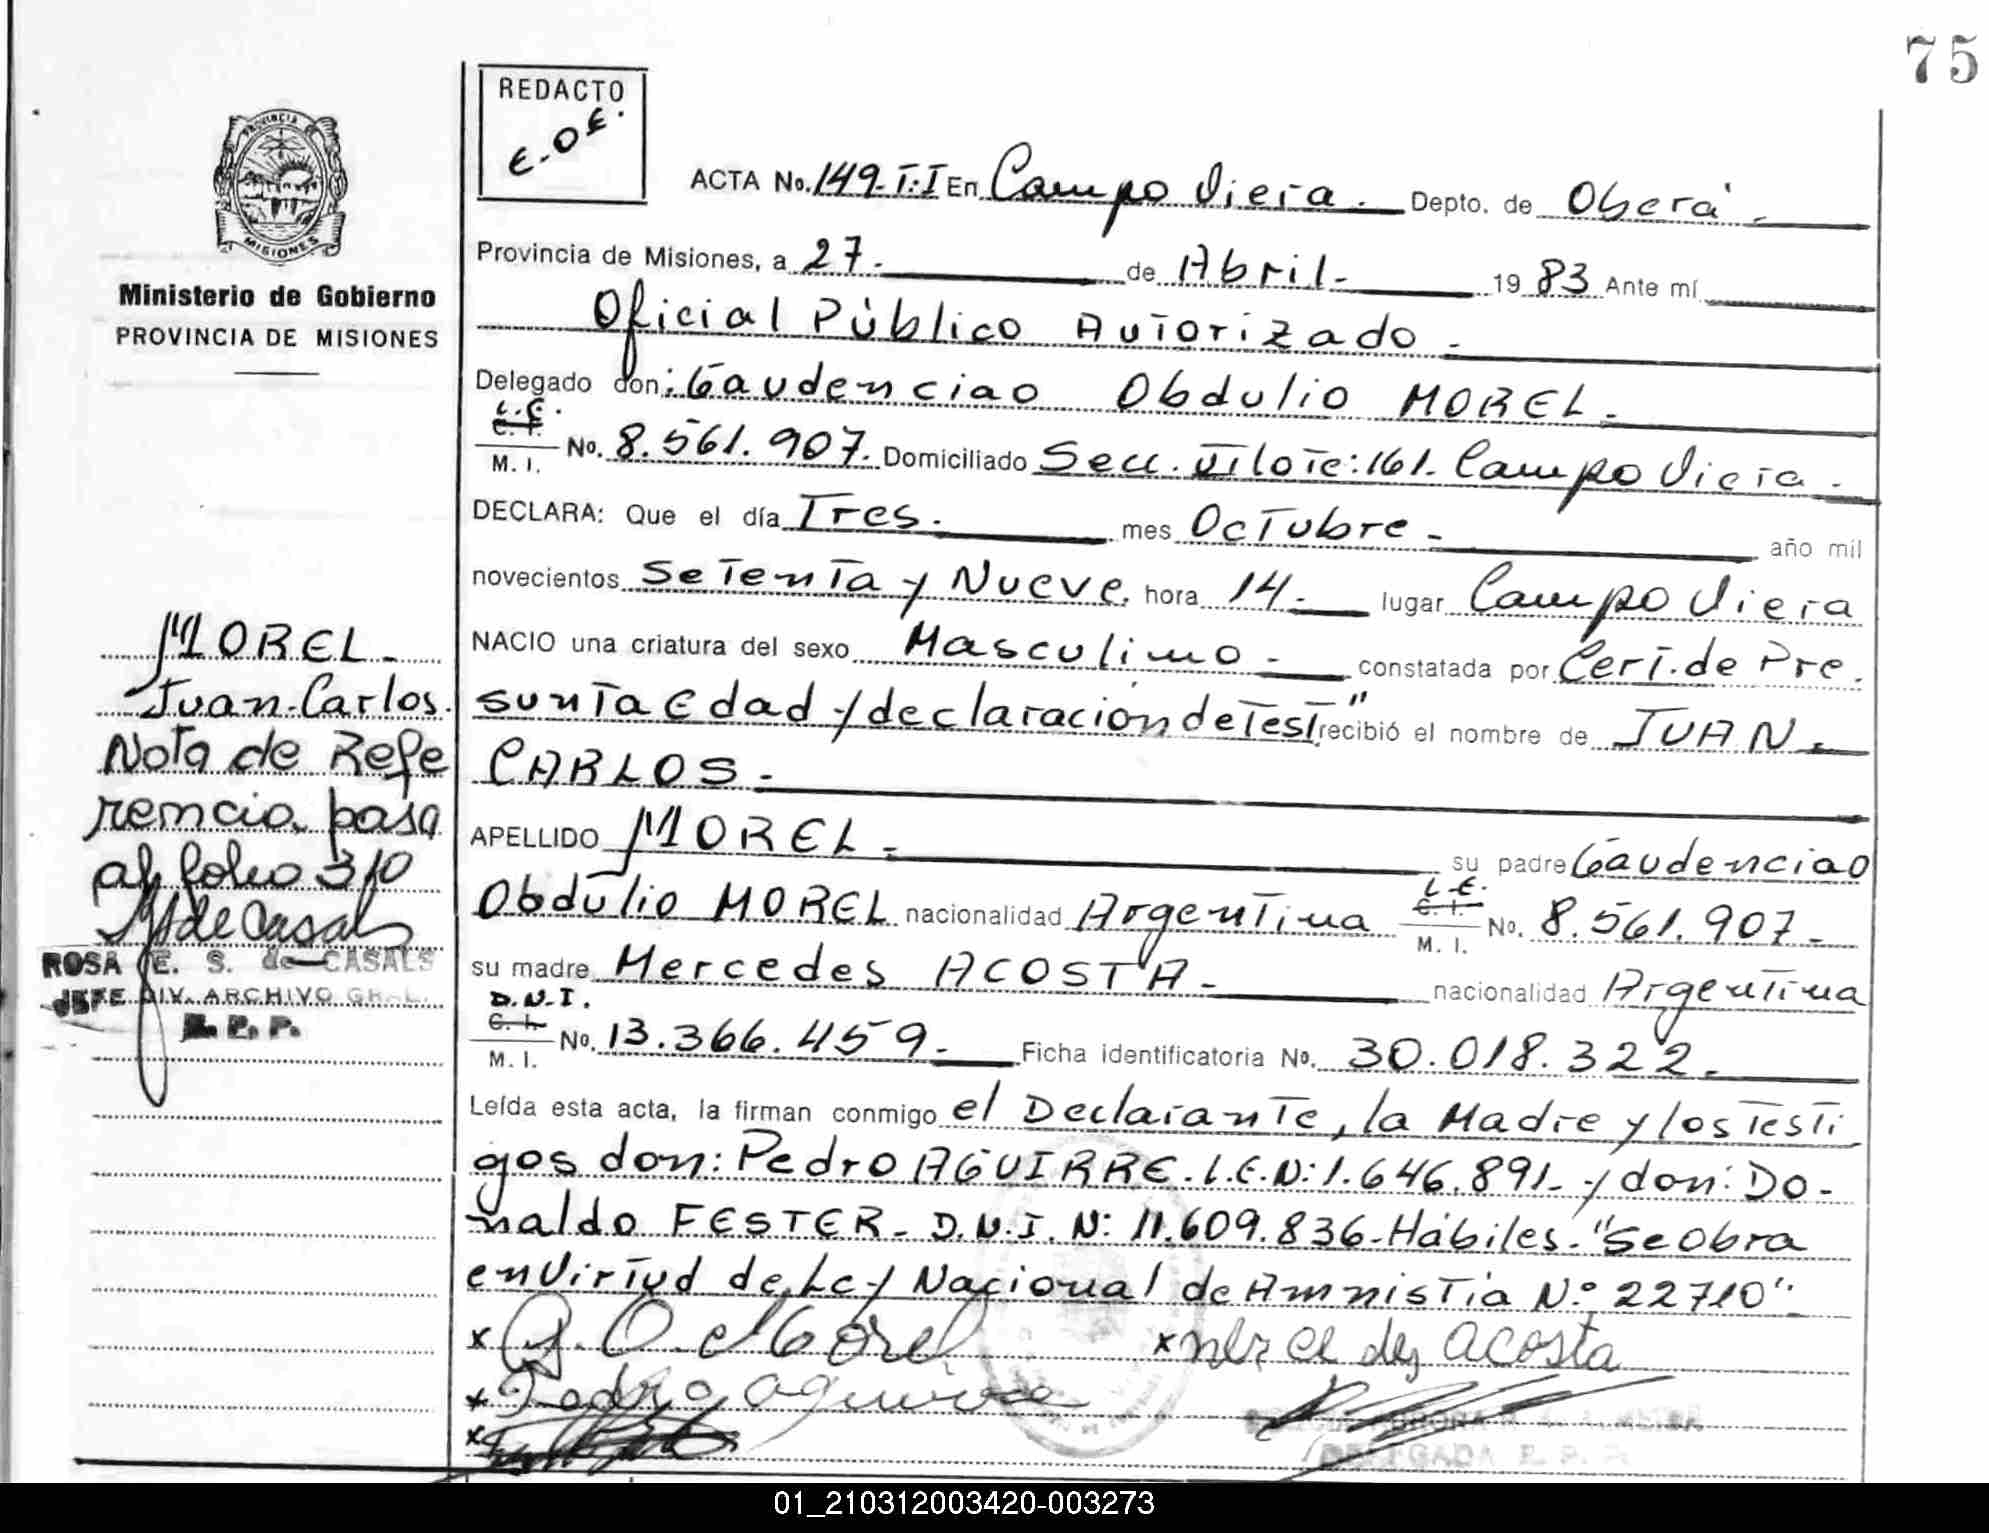 75
REDACTO
E.O.E.
PROVINCIA
MISIONES
Ministerio de Gobierno
PROVINCIA DE MISIONES
ACTA No. 149-T:I En Campo Viera. Depto. de Oberá -
Provincia de Misiones, a 27. de Abril - 19 83 Ante mí
Oficial Público Autorizado -
Delegado don: Gaudenciao Obdulio MOREL.
L.E.
C. I.
M. I.
No. 8.561.907. Domiciliado Secc. VI lote: 161. Campo Viera -
DECLARA: Que el día Tres. mes Octubre - año mil
novecientos Setenta y Nueve. hora 14. lugar Campo Viera
NACIO una criatura del sexo Masculino - constatada por Cert. de Pre.
sunta Edad y declaración de Test" recibió el nombre de JUAN -
CARLOS -
APELLIDO MOREL - su padre Gaudenciao
Obdulio MOREL nacionalidad Argentina L.E. C. I. M. I. No. 8.561.907 -
su madre Mercedes ACOSTA - nacionalidad Argentina
D.N.I.
C. I.
M. I.
No. 13.366.459 - Ficha identificatoria No. 30.018.322 -
Leída esta acta, la firman conmigo el Declarante, la Madre y los Testi
gos don: Pedro AGUIRRE. L.E.N: 1.646.891 - y don: Do -
naldo FESTER - D.N.I. N: 11.609.836 - Hábiles - "Se Obra
en Virtud de Ley Nacional de Amnistia Nº 22710"
x G. O. Morel
x Mer ce des Acosta
x Pedro Aguirre
x
DELEGADA
MOREL -
Juan Carlos.
Nota de Refe
rencia pasa
al folio 310
R de Casals
ROSA E. S. de CASALS
JEFE DIV. ARCHIVO GRAL.
R. P. P.
01_210312003420-003273